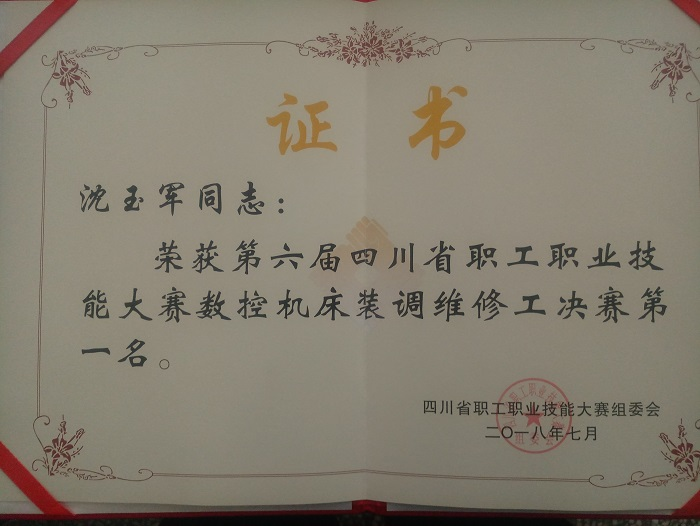 证书
沈玉军同志：
荣获第六届四川省职工职业技
能大赛数控机床装调维修工决赛第
一名。
四川省职工职业技能大赛组委会
二〇一八年七月